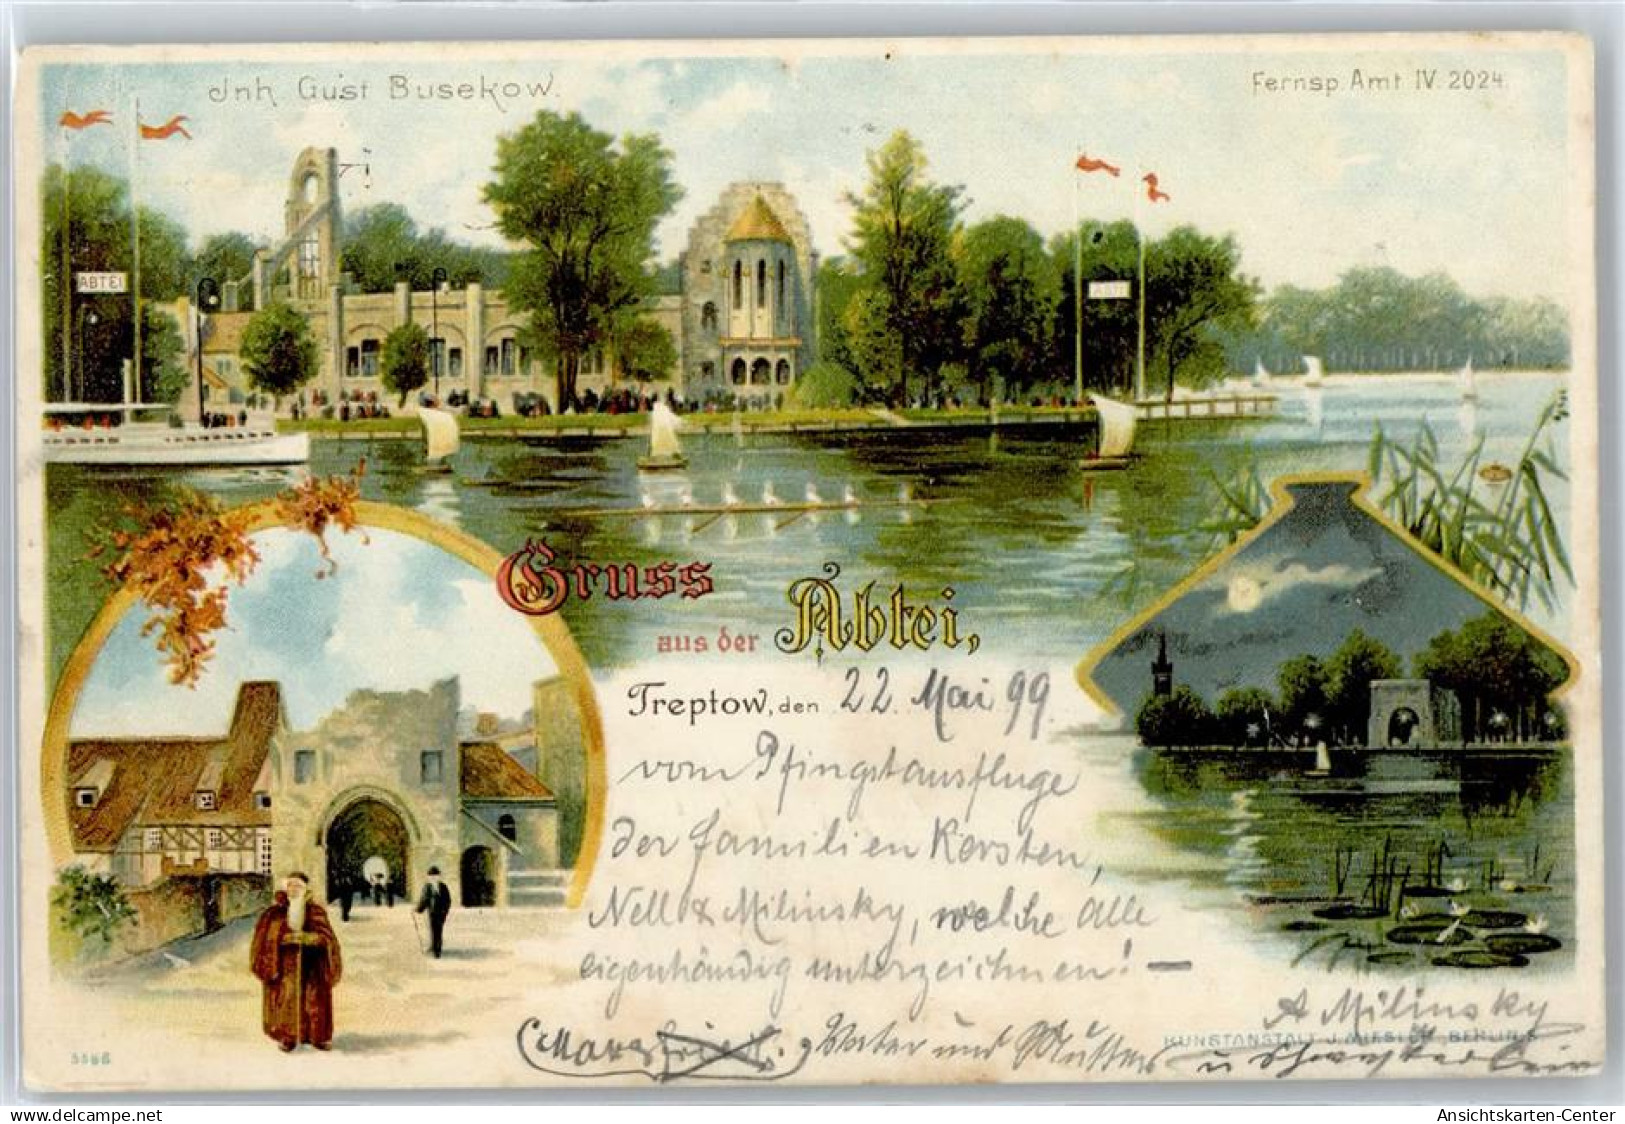 Jnh. Gust Busekow.
Fernsp. Amt IV. 2024.
ABTEI
ABTEI
Gruss
aus der Abtei,
Treptow, den 22. Mai 99.
vom Pfingstausfluge
der Familien Kersten,
Nell & Milinsky, welche alle
eigenhändig unterzeichnen! —
A Milinsky
KUNSTANSTALT J. MIESLER, BERLIN S.
Vater und Mutter
u
5586
www.delcampe.net
Ansichtskarten-Center